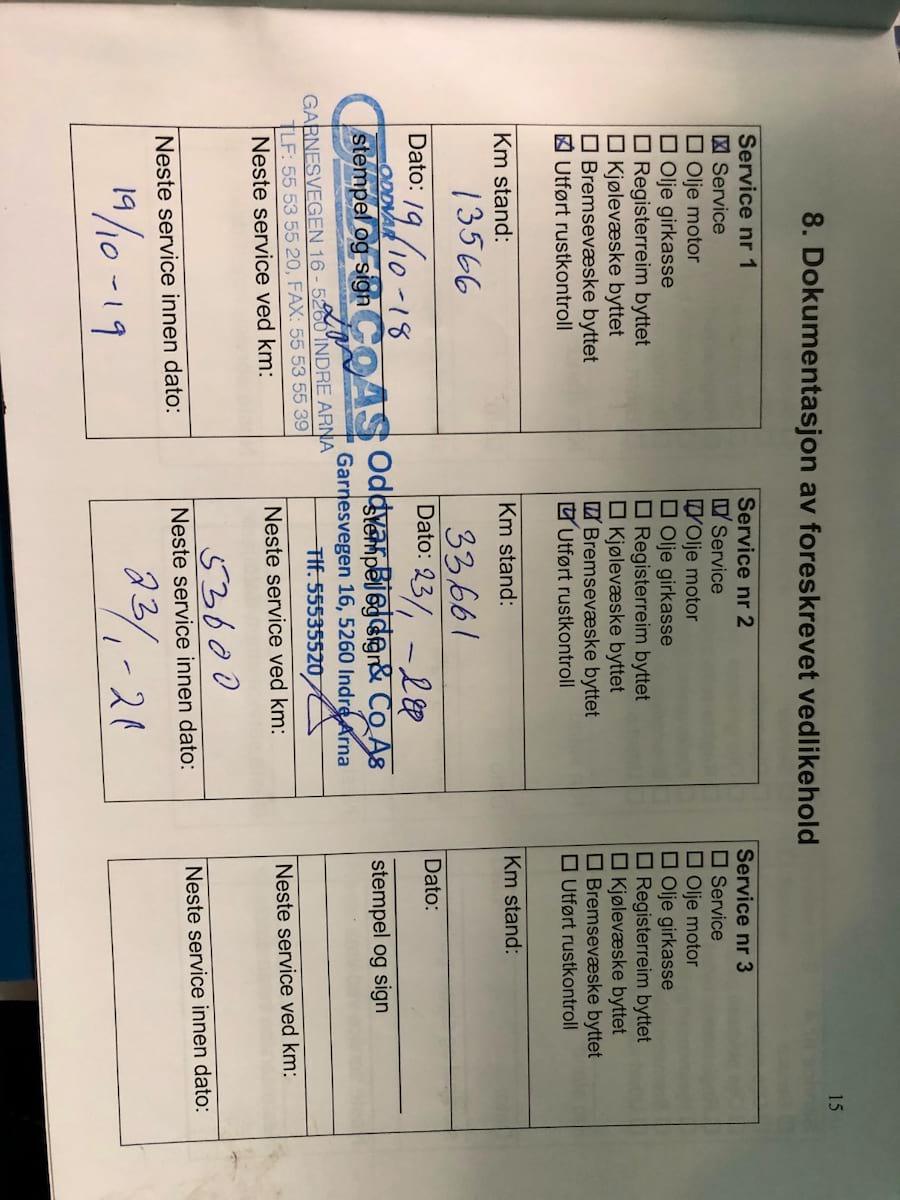 15
8. Dokumentasjon av foreskrevet vedlikehold
Service nr 1
☒ Service
☐ Olje motor
☐ Olje girkasse
☐ Registerreim byttet
☐ Kjølevæske byttet
☐ Bremsevæske byttet
☒ Utført rustkontroll
Km stand:
13566
Dato: 19/10-18
stempel og sign
ODDVAR
BJELDE & Co AS
GARNESVEGEN 16 - 5260 INDRE ARNA
TLF: 55 53 55 20, FAX: 55 53 55 39
Neste service ved km:
Neste service innen dato:
19/10-19
Service nr 2
☑ Service
☑ Olje motor
☐ Olje girkasse
☐ Registerreim byttet
☐ Kjølevæske byttet
☑ Bremsevæske byttet
☑ Utført rustkontroll
Km stand:
33661
Dato: 23/1-20
stempel og sign
Oddvar Bjelde & Co As
Garnesvegen 16, 5260 Indre Arna
Tlf. 55535520
Neste service ved km:
53600
Neste service innen dato:
23/1-21
Service nr 3
☐ Service
☐ Olje motor
☐ Olje girkasse
☐ Registerreim byttet
☐ Kjølevæske byttet
☐ Bremsevæske byttet
☐ Utført rustkontroll
Km stand:
Dato:
stempel og sign
Neste service ved km:
Neste service innen dato: